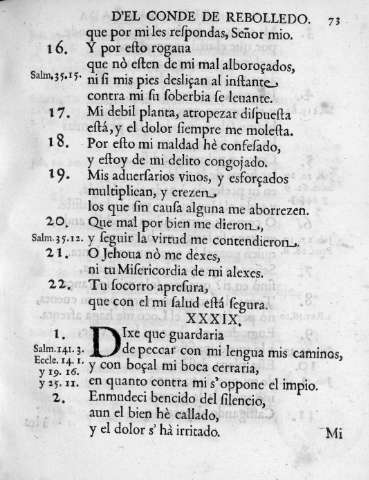 D'EL CONDE DE REBOLLEDO. 73
que por mi les reſpondas, Señor mio.
16. Y por eſto rogaua
que nò eſten de mi mal alboroçados,
Salm. 35. 15. ni ſi mis pies desliçan al inſtante
contra mi ſu soberbia ſe leuante.
17. Mi debil planta, atropezar diſpueſta
eſtà, y el dolor ſiempre me moleſta.
18. Por eſto mi maldad hè confeſado,
y eſtoy de mi delito congojado.
19. Mis aduerſarios viuos, y esforçados
multiplican, y crezen
los que ſin cauſa alguna me aborrezen.
20. Que mal por bien me dieron,
Salm. 35. 12. y ſeguir la virtud me contendieron.
21. O Jehoua nò me dexes,
ni tu Miſericordia de mi alexes.
22. Tu socorro apreſura,
que con el mi salud eſtá ſegura.
XXXIX.
1. DIxe que guardaria
Salm. 141. 3. de peccar con mi lengua mis caminos,
Eccle. 14. 1. y con boçal mi boca cerraria,
y 19. 16.
y 25. 11. en quanto contra mi s'oppone el impio.
2. Enmudeci bencido del ſilencio,
aun el bien hè callado,
y el dolor s' hà irritado.
Mi